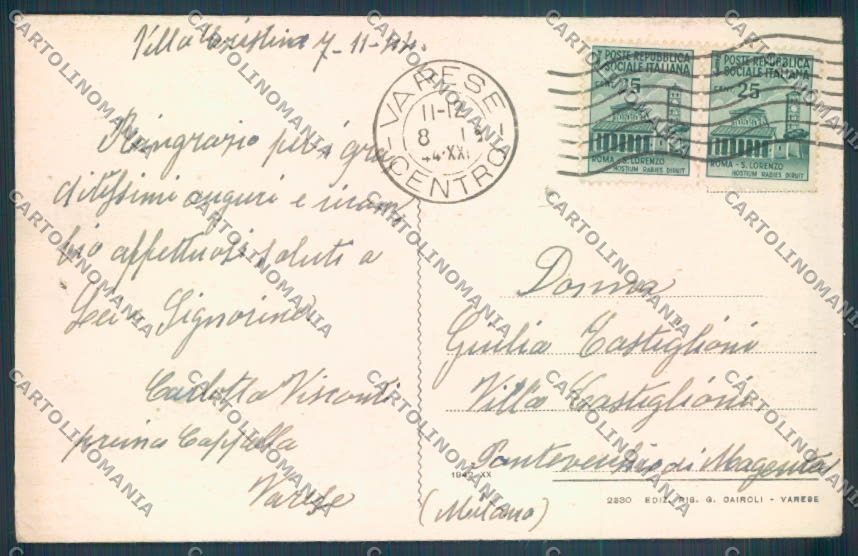 Villa Cristina 7-11-44.
Ringrazio per i gra
ditissimi auguri e ricam
bio affettuosi saluti a
Lei e Signorina.
Carlotta Visconti
prima Cappella
Varese
VARESE
11-12
8
44·XXI
CENTRO
POSTE REPUBBLICA
SOCIALE ITALIANA
CENT. 25
ROMA - S. LORENZO
HOSTIUM RABIES DIRUIT
POSTE REPUBBLICA
SOCIALE ITALIANA
CENT. 25
ROMA - S. LORENZO
HOSTIUM RABIES DIRUIT
Donna
Giulia Castiglioni
Villa Castiglioni
Pontevecchio di Magenta
(Milano)
1942 XX
2830 EDIZ. RIS. G. CAIROLI - VARESE
CARTOLINOMANIA